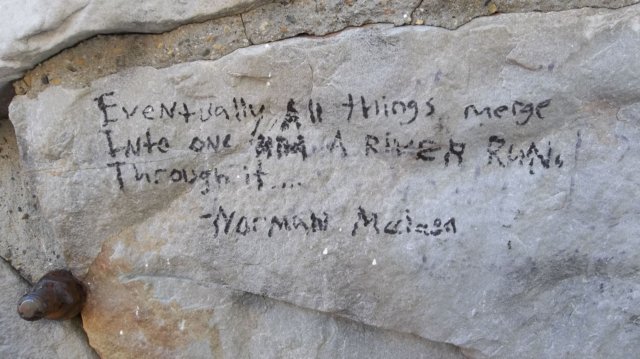 Eventually, All things merge
Into one and A RIVER RUN,
Through it....
-Norman Maclean